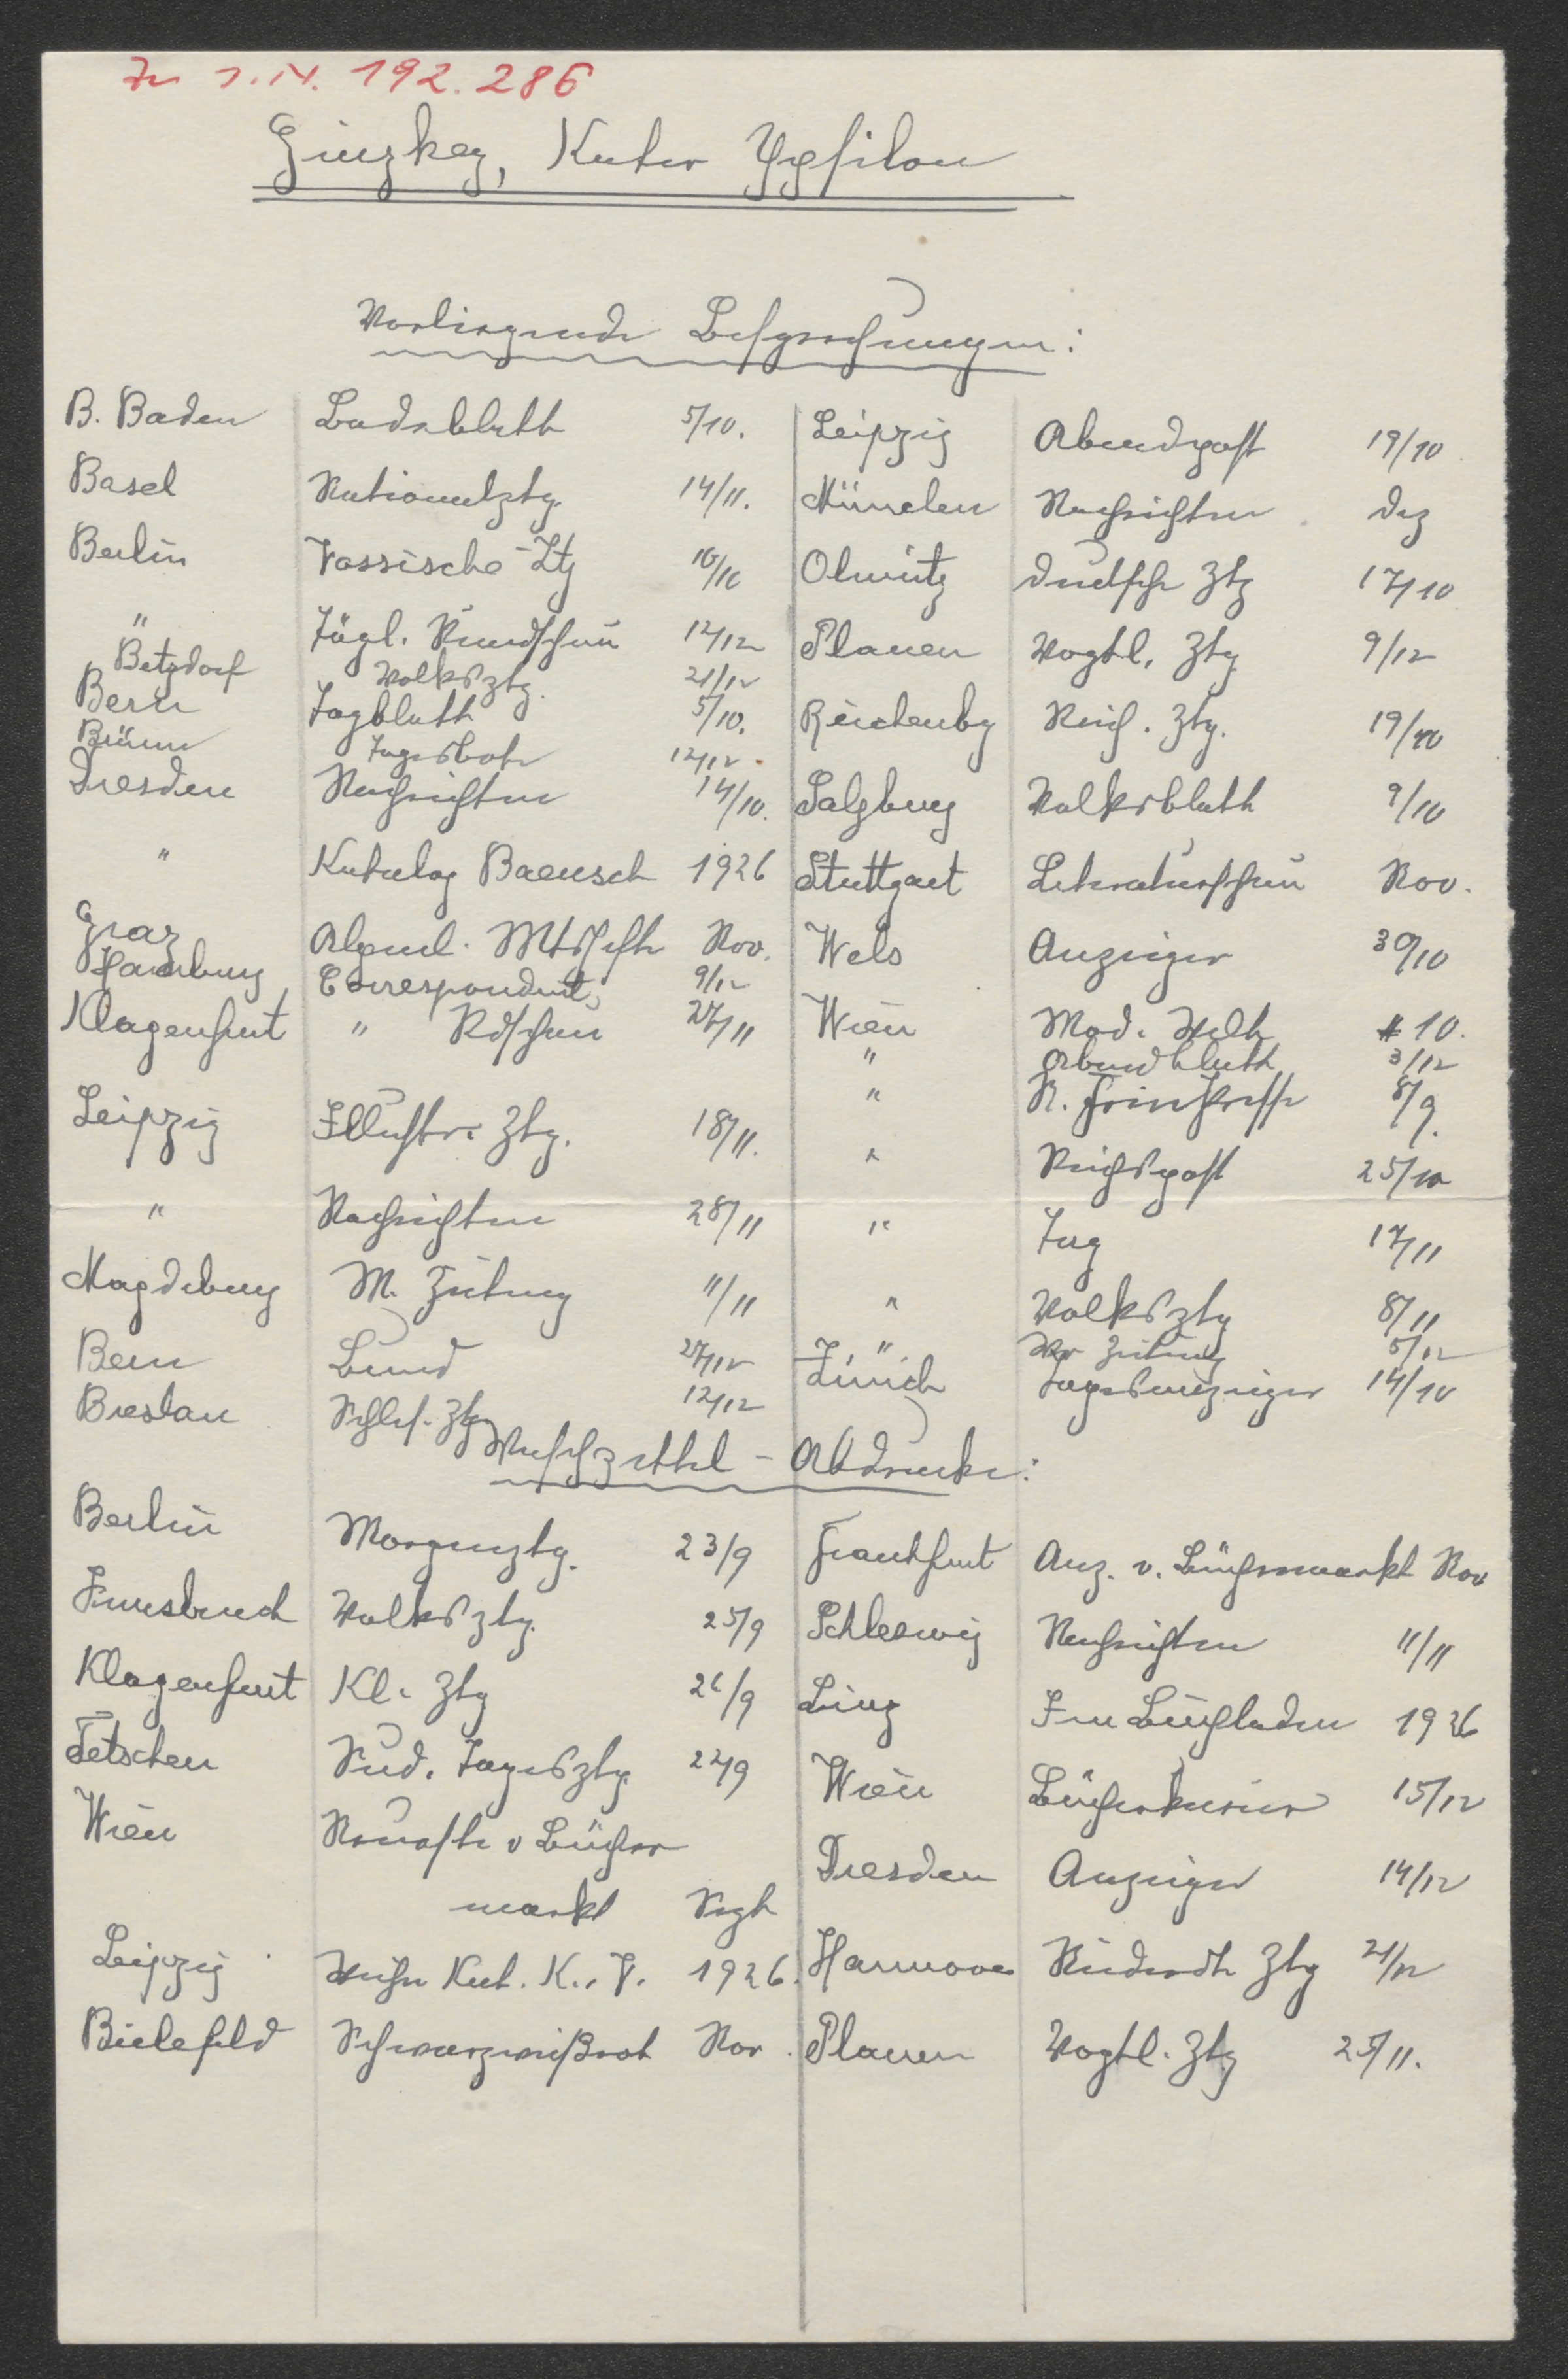 Zu I.N. 192.286
Ginzkey, Kater Ypsilon
Vorliegende Besprechungen:
B. Baden Badeblatt 5/10.
Basel Nationalztg. 14/11.
Berlin Vossische-Ztg 10/10
" Tägl. Rundschau 12/12
Betzdorf Volksztg. 21/12
Bern Tagblatt 5/10.
Brünn Tagesbote 12/12.
Dresden Nachrichten 14/10.
" Katalog Baensch 1926
Graz Alpenl. Mtshefte Nov.
Hamburg Correspondent, 9/12
Klagenfurt " Rdschau 27/11
Leipzig Illustr. Ztg. 18/11.
" Nachrichten 28/11
Magdeburg M. Zeitung 11/11
Bern Bund 27/12
Breslau Schles. Ztg 12/12
Leipzig Abendpost 19/10
München Nachrichten Dez
Olmütz Deutsche Ztg 17/10
Plauen Vogtl. Ztg 9/12
Reichenbg Reich. Ztg. 19/10
Salzburg Volksblatt 9/10
Stuttgart Literaturschau Nov.
Wels Anzeiger 30/10
Wien Mod. Welt # 10.
" Abendblatt 3/12
" N. Freie Presse 8/9.
" Reichspost 25/10
" Tag 17/11
" Volksztg 8/11
" Wr Zeitung 5/12
Zürich Tagesanzeiger 14/10
Waschzettel-Abdrucke:
Berlin Morgenztg. 23/9
Innsbruck Volksztg. 25/9
Klagenfurt Kl. Ztg 26/9
Tetschen Sud. Tagesztg 22/9
Wien Neueste v Bücher
markt Sept
Leipzig Weihn Kat. K., V. 1926.
Bielefeld Schwarzweißrot Nov.
Frankfurt Anz. v. Büchermarkt Nov
Schleswig Nachrichten 11/11
Linz Im Buchladen 1926
Wien Bücherkurier 15/12
Dresden Anzeiger 14/12
Hannover Niederdte Ztg 21/12
Plauen Vogtl. Ztg 25/11.